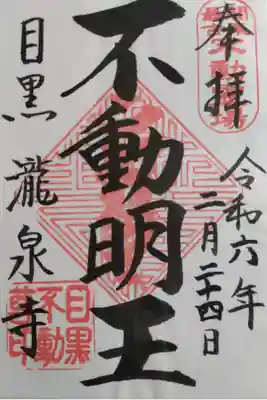 奉拝
令和六年
二月二十四日
不動明王
目黒 瀧泉寺
目黒
不動